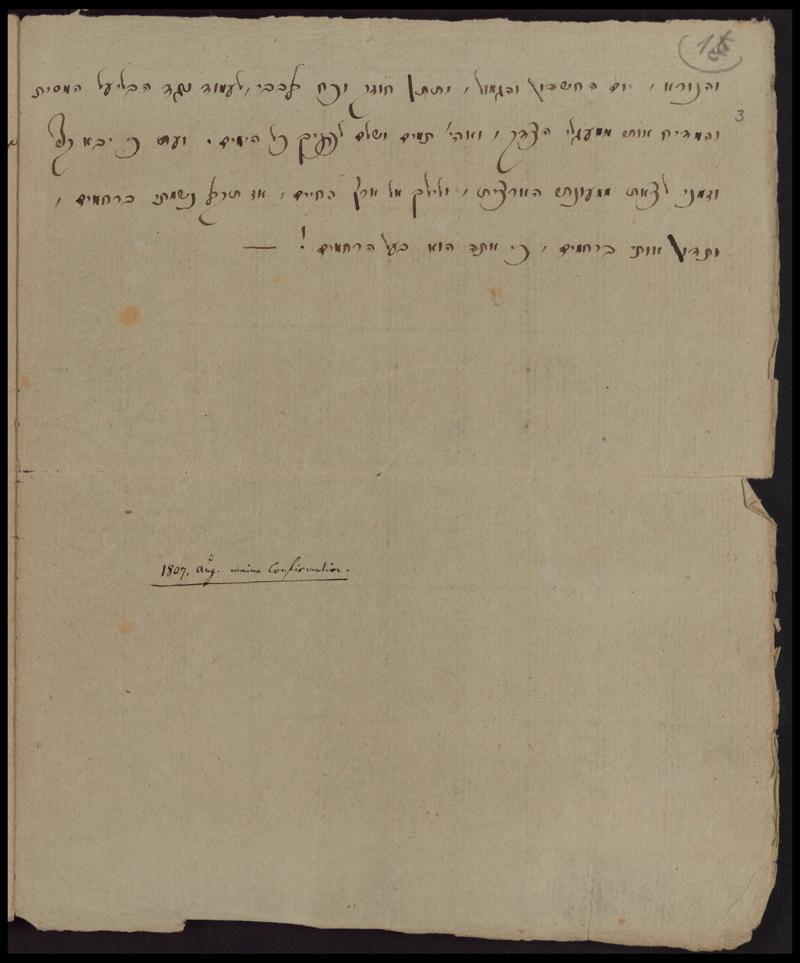 והנורא, יום החשבון והגמול, ותתן חוזק וכח לבבי, לעמוד נגד הבליעל המסית
3
והמדיח אותי ממעגלי הצדק, ואהי' תמים ושלם לפניך כל הימים. ועת כי יבא קצי
וזמני לצאת ממעונתי הארצית, ולילך אל ארץ החיים, אז תקבל נשמתי ברחמים,
ותדון אותי ברחמים, כי אתה הוא בעל הרחמים! —
1807, aug. meine Confirmation.